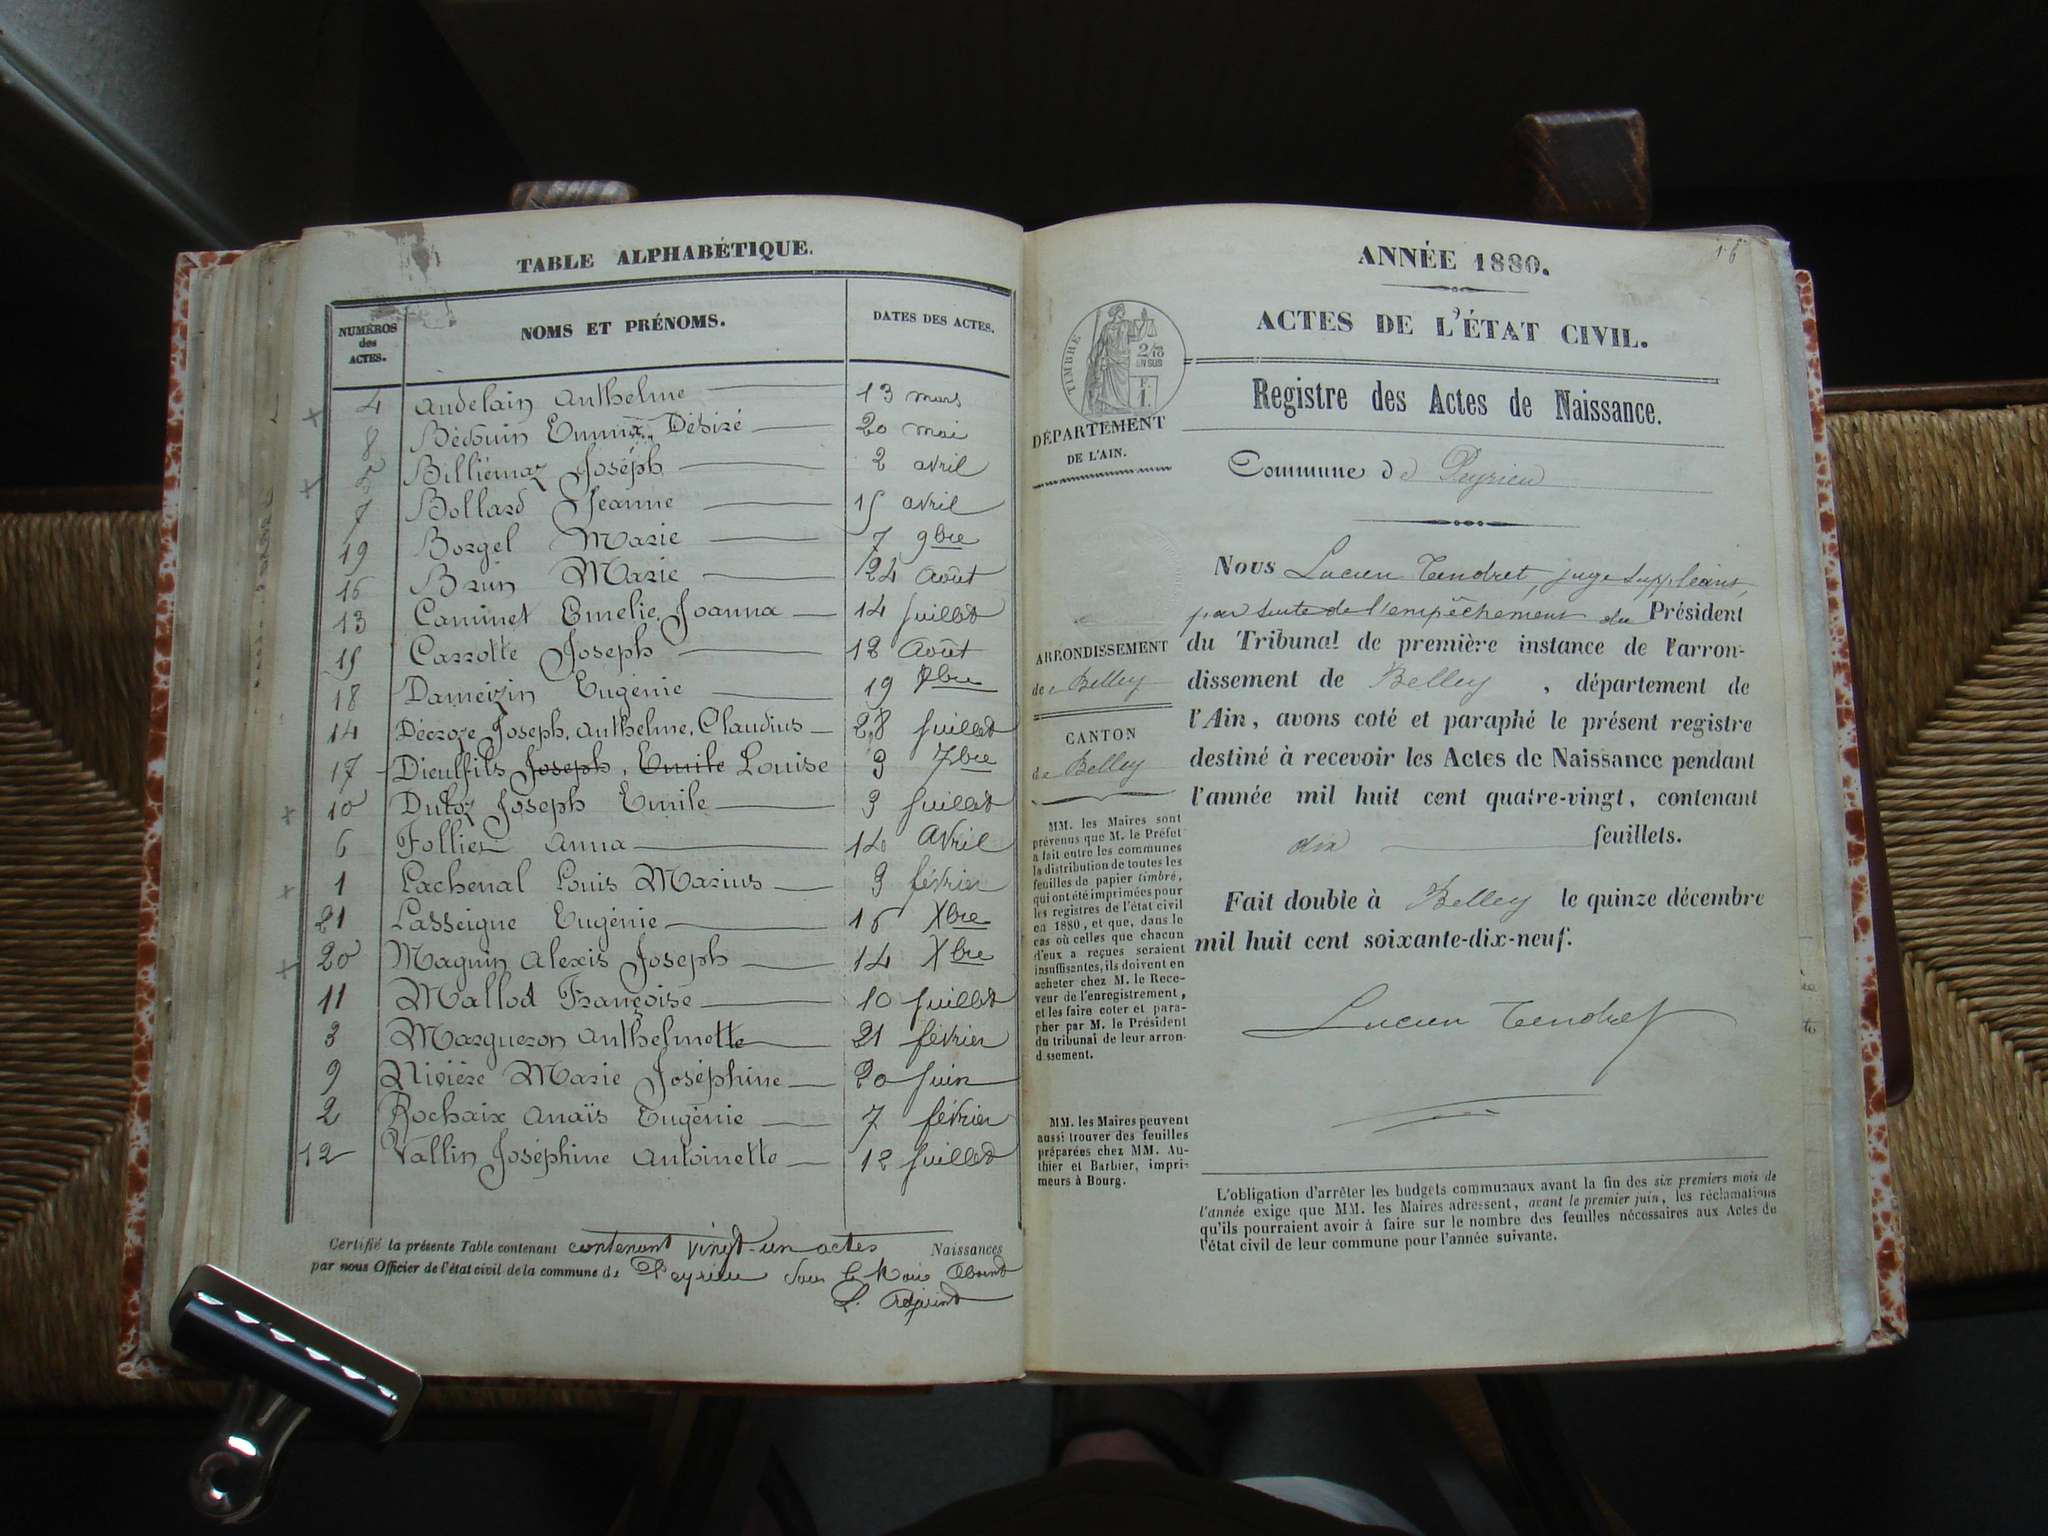 TABLE ALPHABÉTIQUE.
NUMÉROS des ACTES. NOMS ET PRÉNOMS. DATES DES ACTES.
4 Audelain Anthelme 13 mars
8 Béchuin Désiré 20 mai
5 Billiémaz Joséph 2 avril
7 Bollard Jeanne 15 avril
19 Borgel Marie 7 9bre
16 Brun Marie 24 Août
13 Caminet Emelie, Joanna 14 Juillet
15 Carrotte Joseph 12 Août
18 Dameizin Eugénie 19
14 Décroze Joseph, Anthelme, Claudius 28 Juillet
17 Dieulfils Joseph, Emile Louise 3 7bre
10 Dutoz Joseph Emile 3 Juillet
6 Follier Anna 14 Avril
1 Lachenal Louis Marius 3 février
21 Lasseigne Eugénie 16 Xbre
20 Magnin Alexis Joseph 14 Xbre
11 Mallod Françoise 10 Juillet
3 Margueron Anthelmette 21 février
9 Rivière Marie Joséphine 20 Juin
2 Rochaix Anaïs Eugénie 7 février
12 Vallin Joséphine Antoinette 12 Juillet
Certifié la présente Table contenant contenant vingt-un actes Naissances
par nous Officier de l'état civil de la commune de Peyrieu
ANNÉE 1880.
ACTES DE L'ÉTAT CIVIL.
TIMBRE
2/10
EN SUS
F.
1.
Registre des Actes de Naissance.
DÉPARTEMENT
DE L'AIN.
Commune de Peyrieu
Nous Lucien Tendret, juge suppléant,
par suite de l'empêchement du Président
du Tribunal de première instance de l'arron-
dissement de Belley, département de
l'Ain, avons coté et paraphé le présent registre
destiné à recevoir les Actes de Naissance pendant
l'année mil huit cent quatre-vingt, contenant
dix feuillets.
Fait double à Belley le quinze décembre
mil huit cent soixante-dix-neuf.
Lucien Tendret
ARRONDISSEMENT
de Belley
CANTON
de Belley
MM. les Maires sont
prévenus que M. le Préfet
a fait entre les communes
la distribution de toutes les
feuilles de papier timbré,
qui ont été imprimées pour
les registres de l'état civil
en 1880, et que, dans le
cas où celles que chacun
d'eux a reçues seraient
insuffisantes, ils doivent en
acheter chez M. le Rece-
veur de l'enregistrement,
et les faire coter et para-
pher par M. le Président
du tribunal de leur arron-
dissement.
MM. les Maires peuvent
aussi trouver des feuilles
préparées chez MM. Au-
thier et Barbier, impri-
meurs à Bourg.
L'obligation d'arrêter les budgets communaux avant la fin des six premiers mois de
l'année exige que MM. les Maires adressent, avant le premier juin, les réclamations
qu'ils pourraient avoir à faire sur le nombre des feuilles nécessaires aux Actes de
l'état civil de leur commune pour l'année suivante.